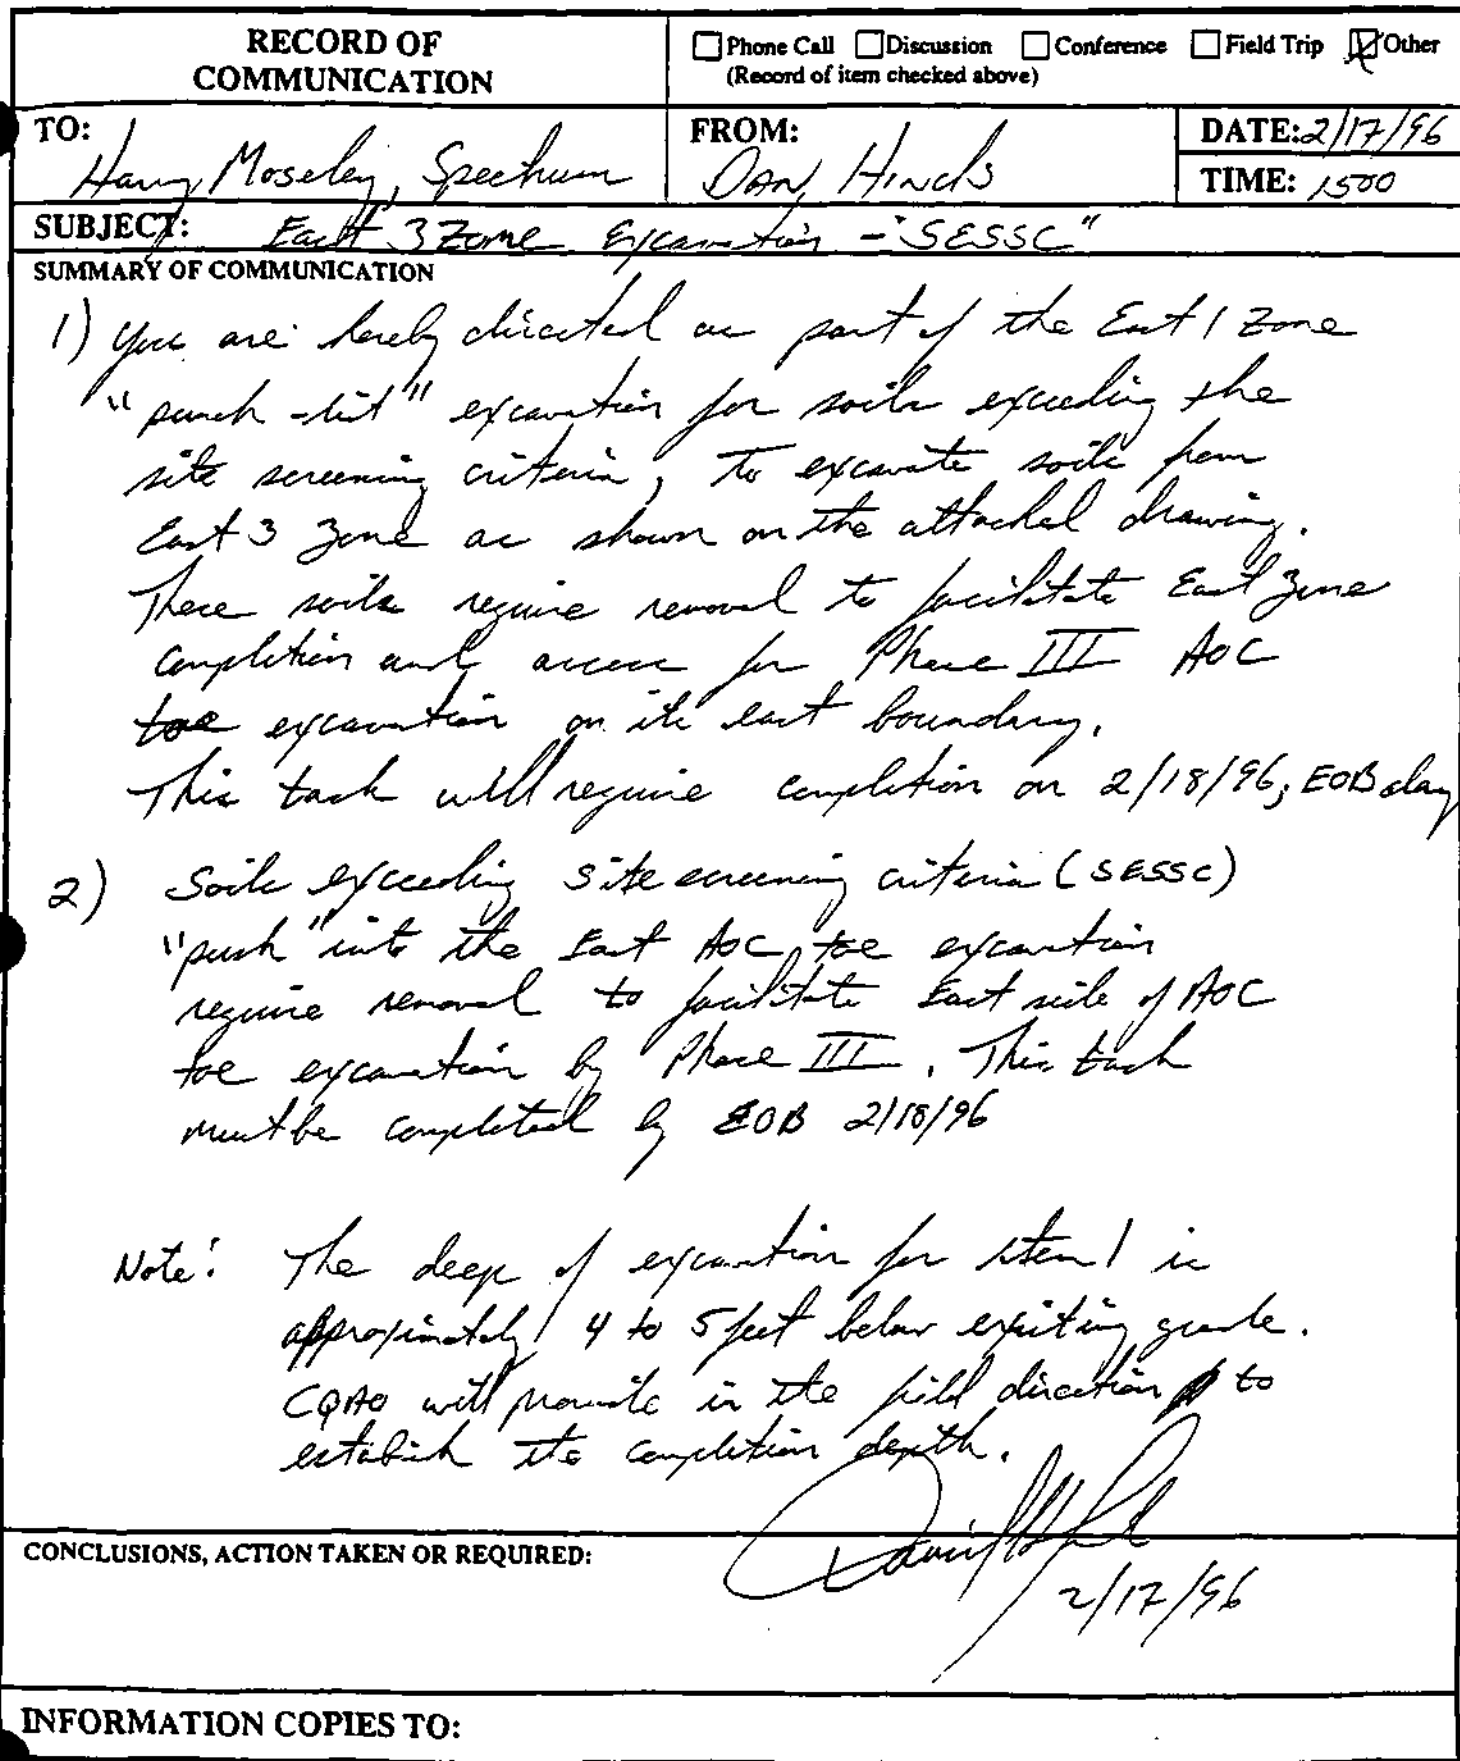 RECORD OF
COMMUNICATION
Phone Call Discussion Conference Field Trip Other
(Record of item checked above)
TO:
Harry Moseley, Spectrum
FROM:
DAN HINds
DATE: 2/17/96
TIME: 1500
SUBJECT: East 3 Zone Excavation - "SESSC"
SUMMARY OF COMMUNICATION
1) You are hereby directed as part of the East 1 Zone
"punch-list" excavation for soils exceeding the
site screening criteria, to excavate soils from
East 3 Zone as shown on the attached drawing.
These soils require removal to facilitate East Zone
completion and access for Phase III AOC
toe excavation on its east boundary.
This task will require completion on 2/18/96, EOB day
2) Soils exceeding site screening criteria (SESSC)
"push" into the East AOC toe excavation
require removal to facilitate East side of AOC
toe excavation by Phase III. This task
must be completed by EOB 2/18/96
Note: The deep of excavation for item 1 is
approximately 4 to 5 feet below existing grade.
CQAO will provide in the field direction to
establish the completion depth.
CONCLUSIONS, ACTION TAKEN OR REQUIRED:
2/17/96
INFORMATION COPIES TO: